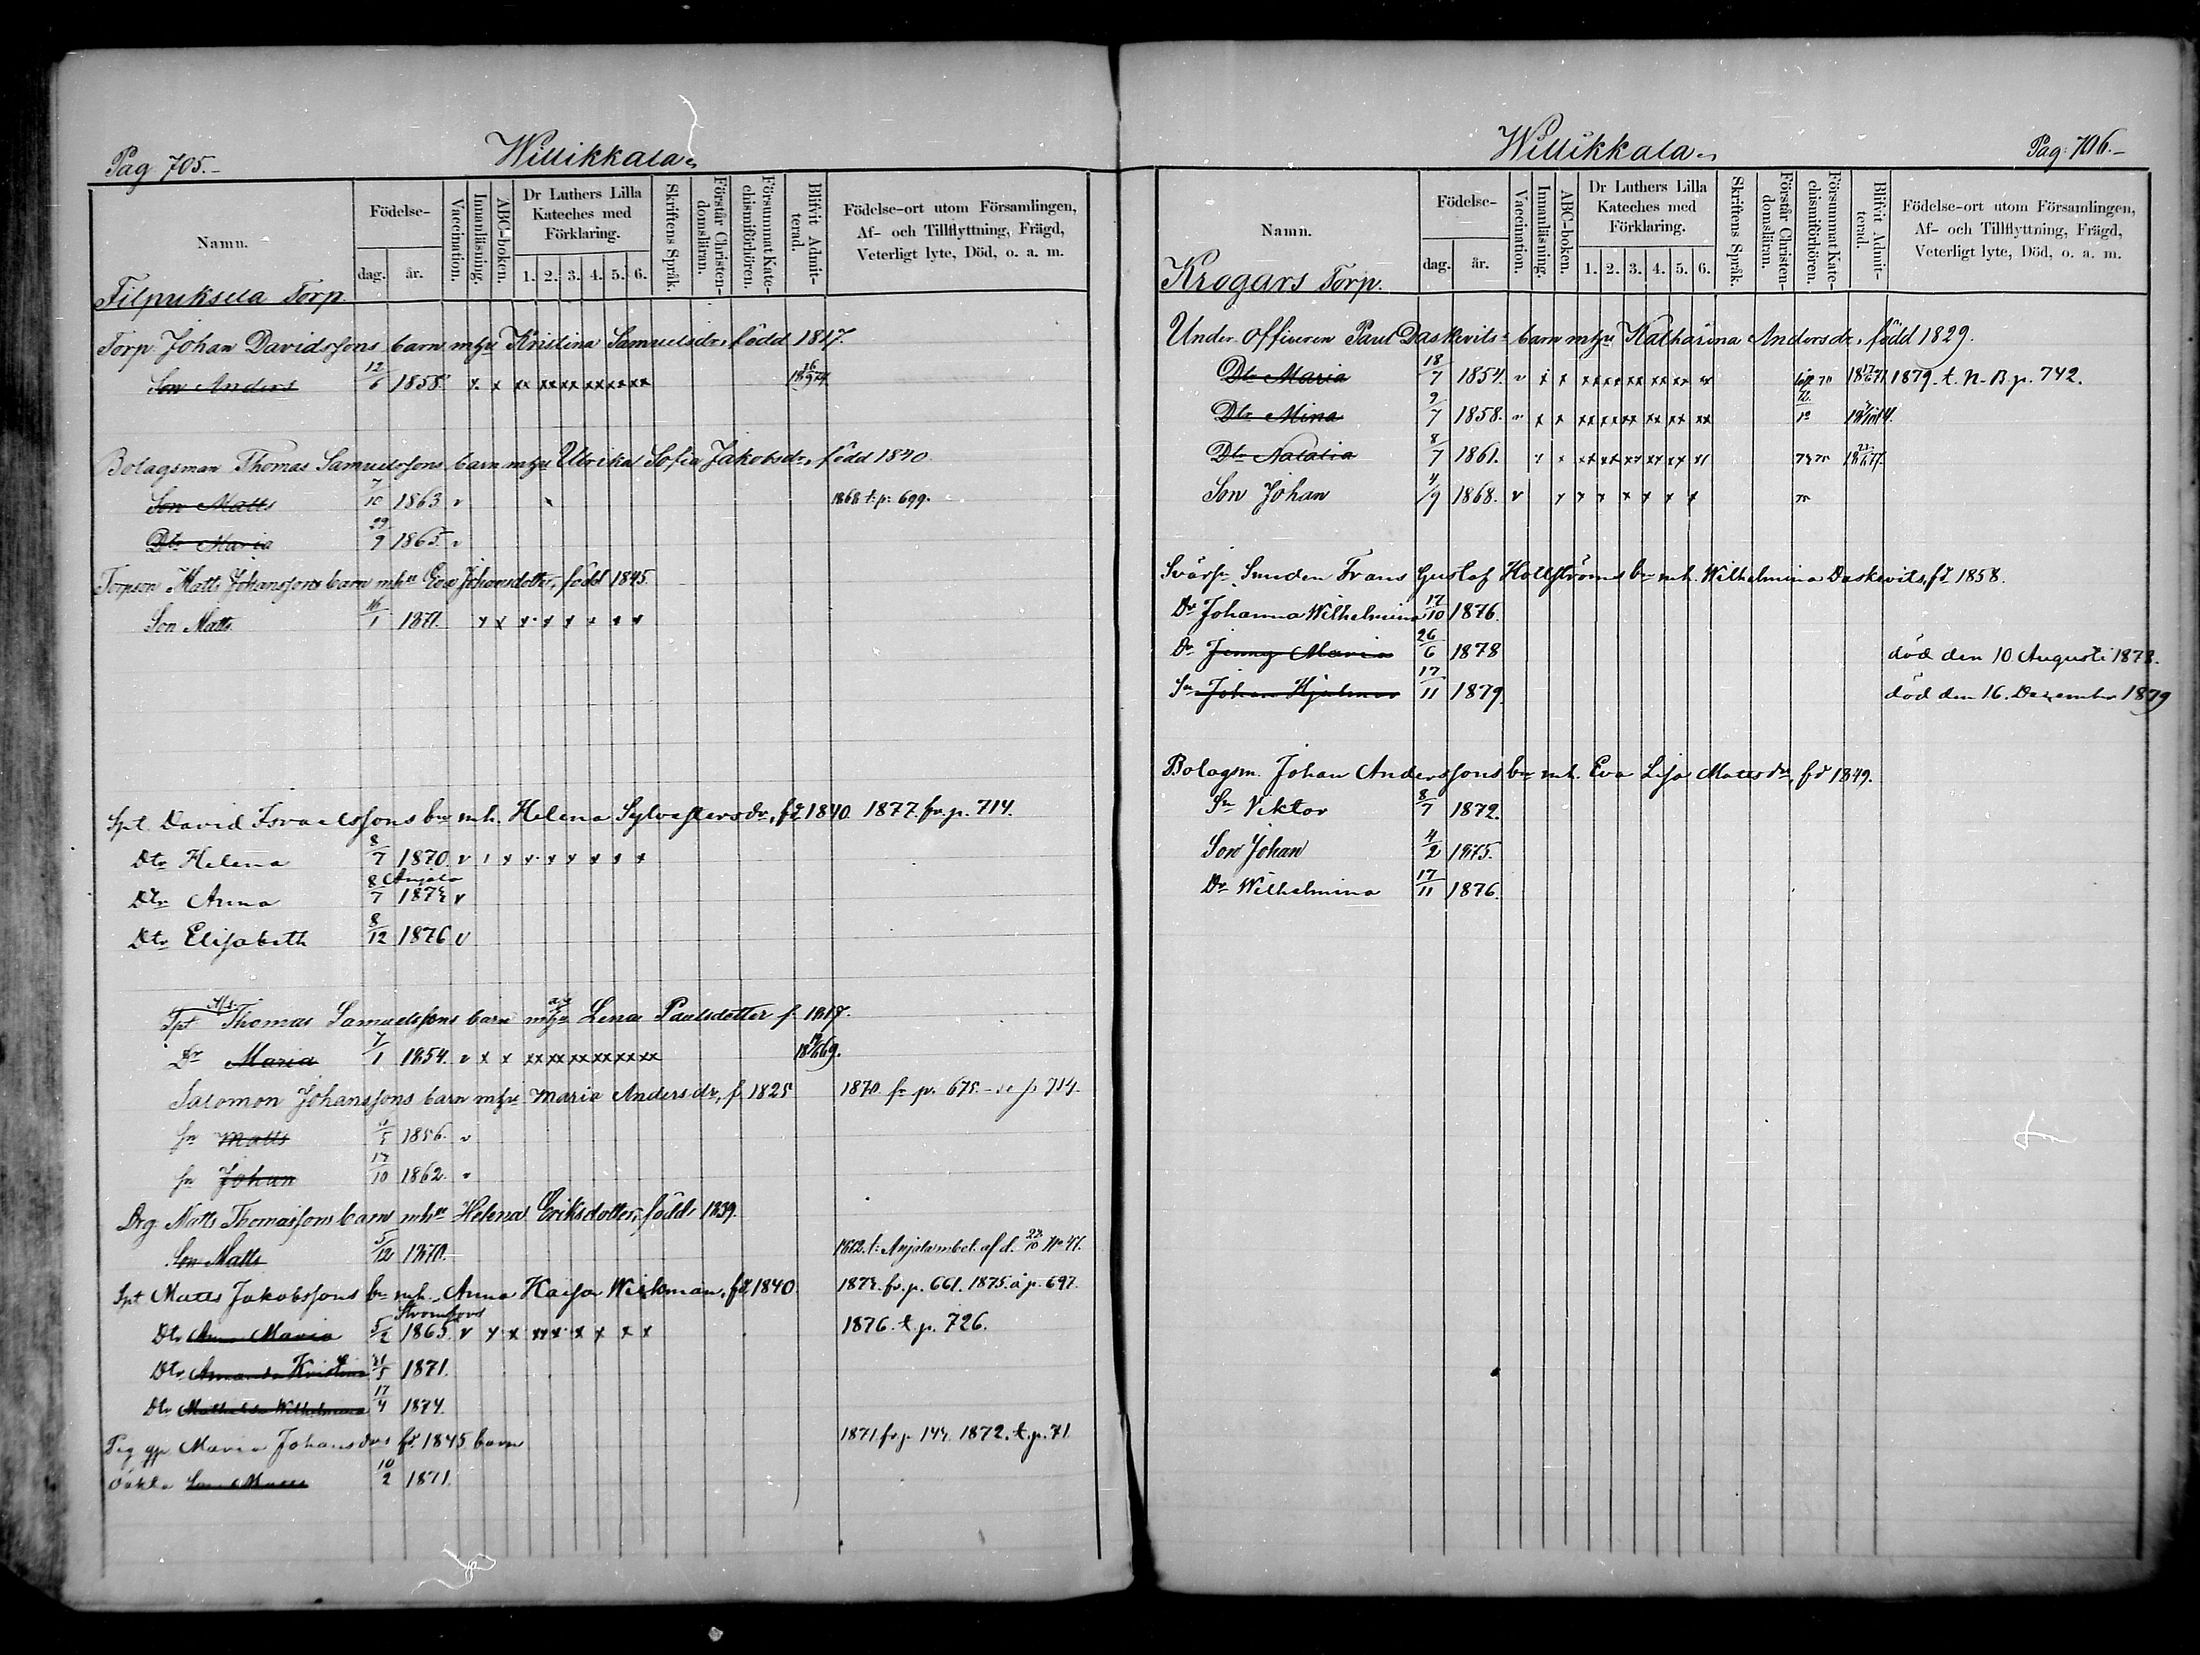 Pag. 705.
Willikkala
Namn.
Födelse-
dag.
år.
Vaccination.
Innanläsning.
ABC-boken.
Dr Luthers Lilla
Kateches med
Förklaring.
1. 2. 3. 4. 5. 6.
Skriftens Språk.
Förstår Christen-
domsläran.
Försummat Kate-
chismiförhören.
Blifvit Admit-
terad.
Födelse-ort utom Församlingen,
Af- och Tillflyttning, Frägd,
Veterligt lyte, Död, o. a. m.
Filpuksela Torp.
Torp. Johan Davidssons barn mhu Kristina Samuelsdr, född 1817.
Son Anders 12/6 1858. x x xx xx xx xx xx xx
Bolagsman Thomas Samuelssons barn mhu Ulrika Sofia Jakobsdr, född 1840
Son Matts 7/10 1863 v 1868 t. p. 699.
Dtr Maria 29/9 1865 v
Torpson Matts Johanssons barn mhu Eva Johansdotter, född 1845.
Son Matts 16/1 1871. x x x x x x x x
Spt David Israelssons bn mh. Helena Sylvestersdr, fd 1840. 1877. fr. p. 714.
Dtr Helena 8/7 1870. v x x x x x x x x
Anjala
Dtr Anna 8/7 1874 v
Dtr Elisabeth 8/12 1876 v
Spt Thomas Samuelssons barn mhu Lena Paulsdotter f. 1817.
Dr Maria 7/1 1854. v x x xx xx xx xx xx xx
Salomon Johanssons barn mhu Maria Andersdr, f. 1825 1870 fr p. 675. - se p 714.
sn Matts 1856. v
sn Johan 17/10 1862. v
Drg. Matts Thomassons barn mhu Helena Eriksdotter, född 1839.
Son Matts 5/12 1870. 1872. t. Anjala mbet. af d. 22/10 No 47.
Spt Matts Jakobssons bn mh. Anna Kaisa Wickman, fd 1840. 1874. fr. p. 661. 1875. å p. 697.
Strömfors
Dtr Anna Maria 5/2 1865. v x x xx x x x x x 1876. t. p. 726.
Dtr Amanda Kristina 21/5 1871.
Dtr Mathilda Wilhelmina 17/4 1874.
Pig. Maria Johansdr fd 1845 barn 1871 fr p 144. 1872. t. p. 71
oäkta Son Matts 10/2 1871.
Willikkala
Pag. 706.
Namn.
Födelse-
dag.
år.
Vaccination.
Innanläsning.
ABC-boken.
Dr Luthers Lilla
Kateches med
Förklaring.
1. 2. 3. 4. 5. 6.
Skriftens Språk.
Förstår Christen-
domsläran.
Försummat Kate-
chismiförhören.
Blifvit Admit-
terad.
Födelse-ort utom Församlingen,
Af- och Tillflyttning, Frägd,
Veterligt lyte, Död, o. a. m.
Krogars Torp.
Under officeren Paul Daskevits barn mhu Katharina Andersdr, född 1829.
Dtr Maria 18/7 1854. v x x xx xx xx xx xx xx 1879. t. N. B. p. 742.
Dtr Mina 9/7 1858. v x x xx xx xx xx xx xx
Dtr Natalia 8/7 1861. x x xx xx xx xx xx xx
Son Johan 4/9 1868. v x x x x x x x
Svärsn. Smeden Frans Gustaf Hollströms bn mh. Wilhelmina Daskevits, fd 1858.
Dr Johanna Wilhelmina 17/10 1876.
Dr Jenny Maria 26/6 1878 död den 10 Augusti 1878.
Sn Johan Hjalmar 17/11 1879. död den 16. December 1879
Bolagsm. Johan Anderssons bn mh. Eva Lisa Mattsdr, fd 1849.
Sn Viktor 8/7 1872.
Son Johan 4/2 1875.
Dr Wilhelmina 17/11 1876.